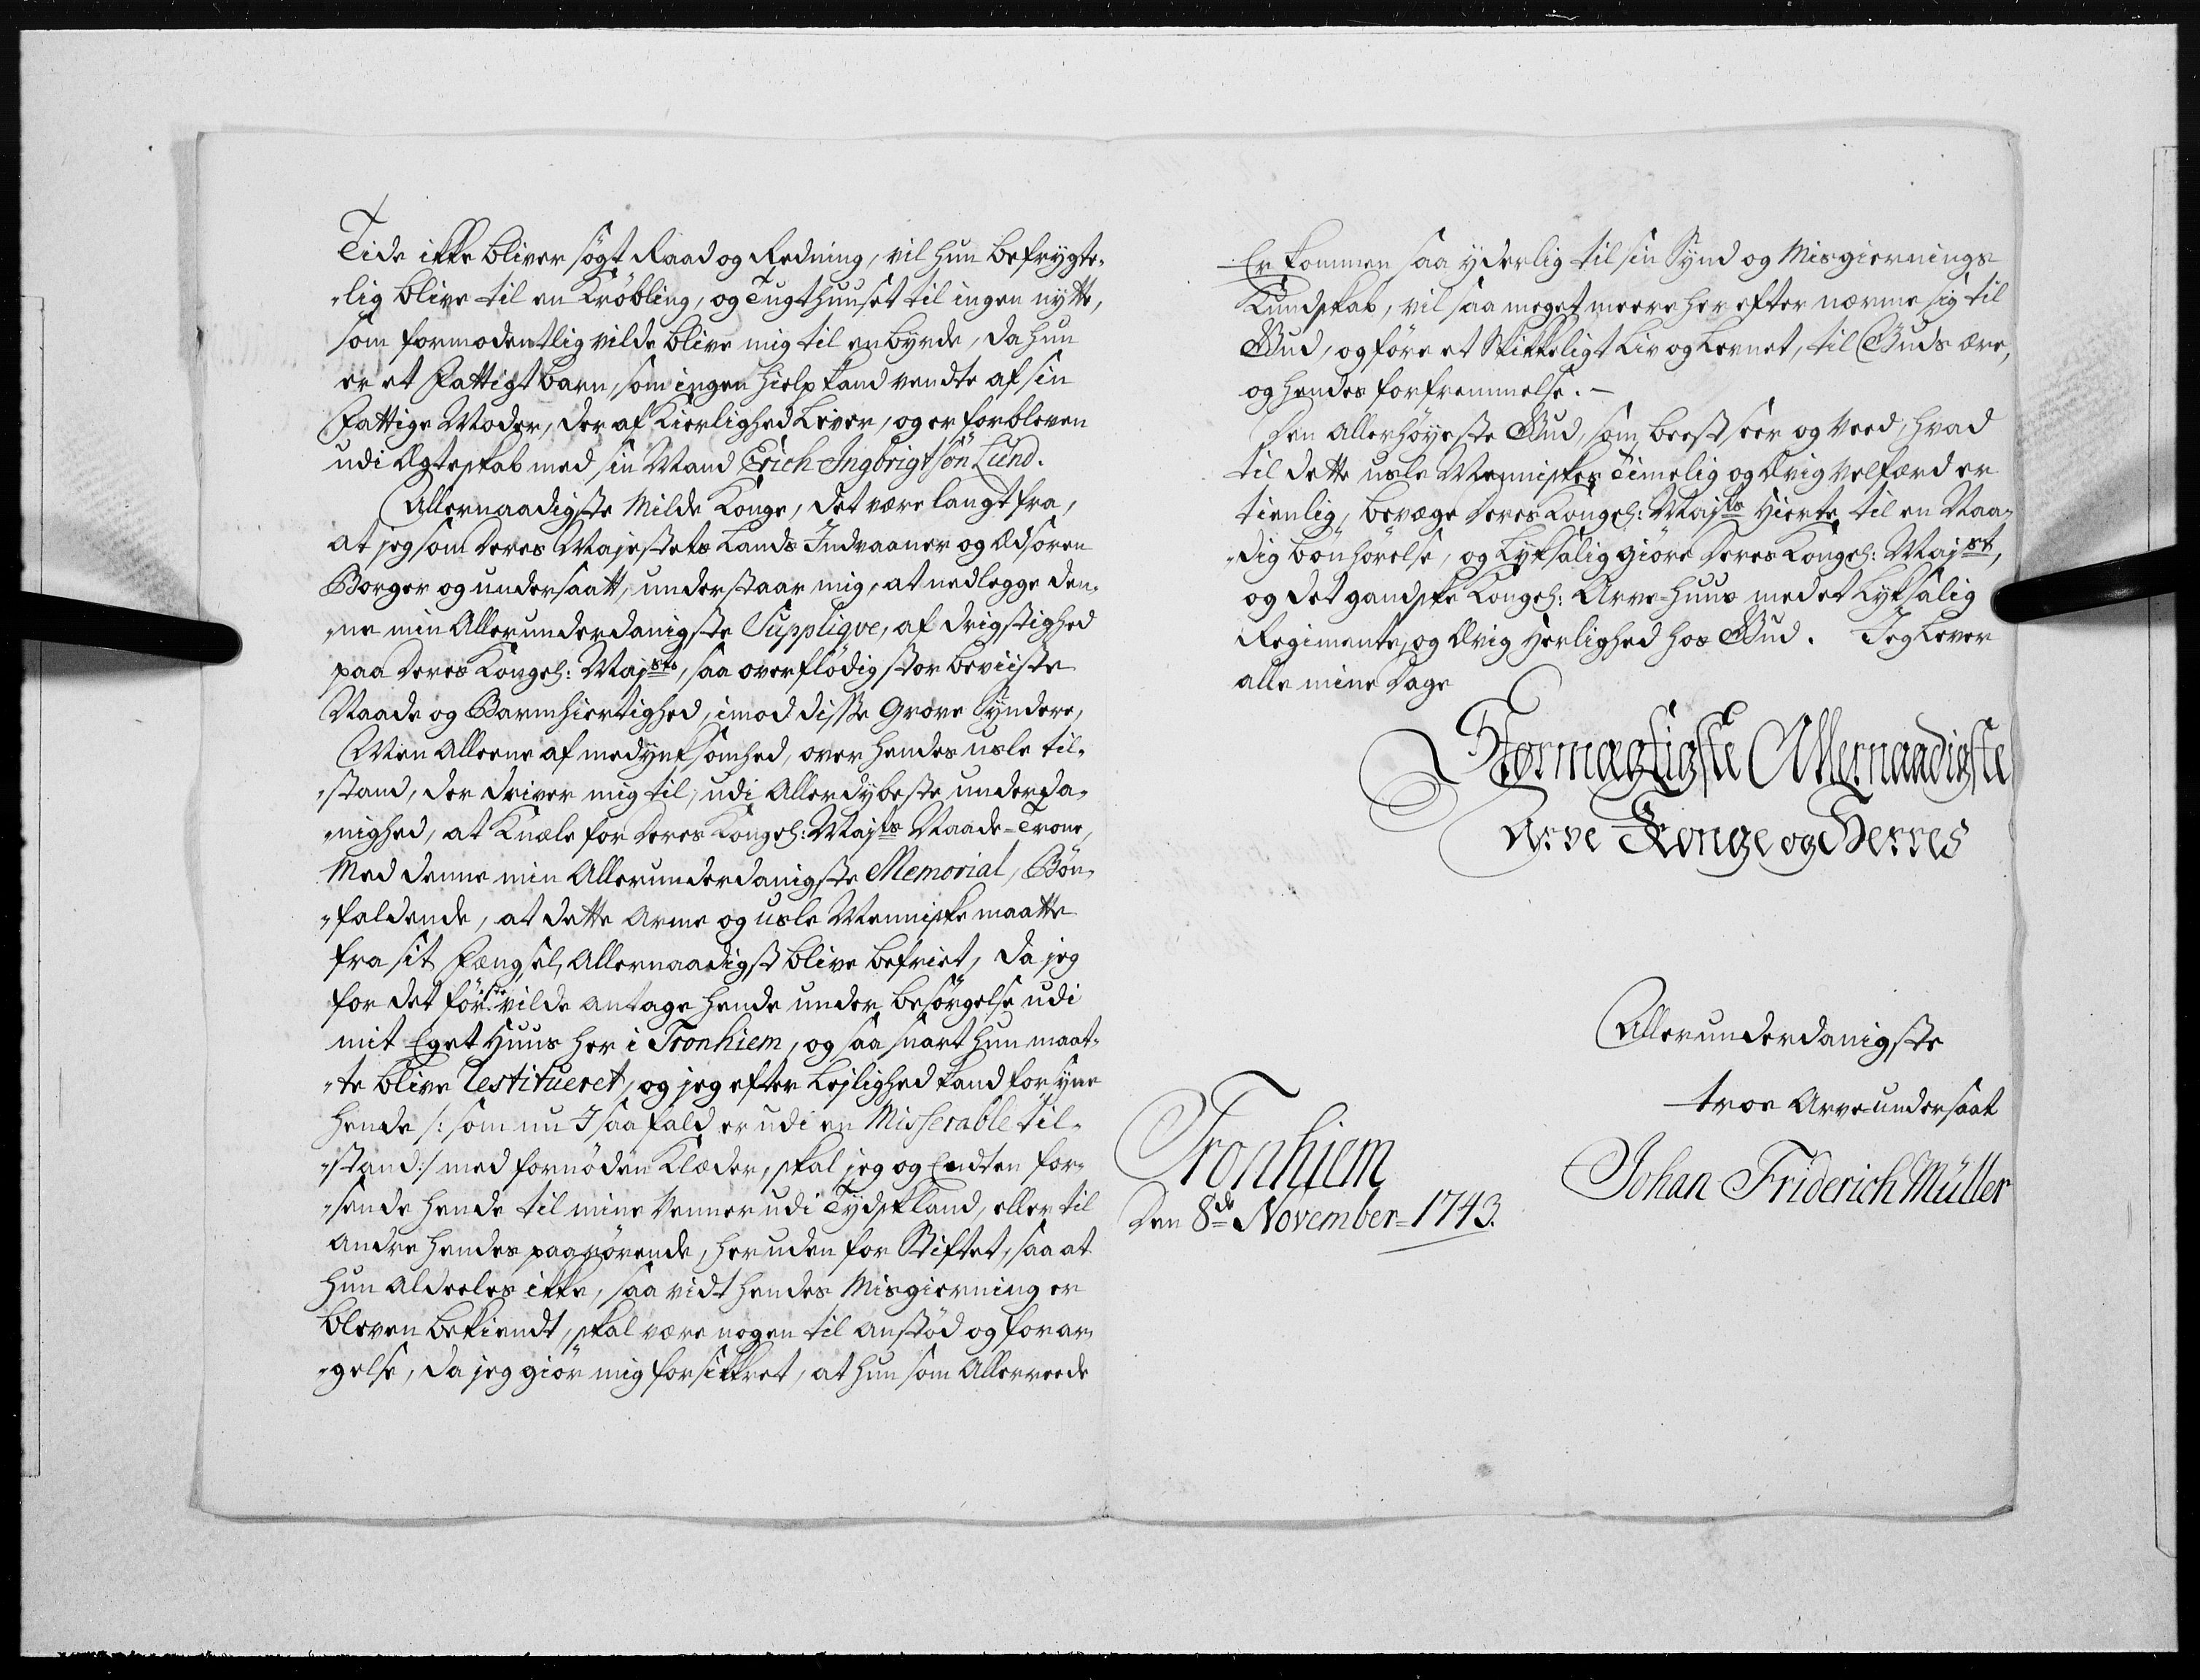 Tide ikke bliver søgt Raad og Redning, vil hun befrygte-
"lig blive til en Krøbling, og Tugthuuset til ingen nytte,
som formodentlig vilde blive mig til en byrde, da hun
er et Fattigt barn, som ingen hielp kand vendte af sin
Fattige Moder, der af Kierlighed Lever, og er forbleven
udi Ægteskab med sin Mand Erich Ingbrigtsøn Lund.
Allernaadigste Milde Konge, det være langt fra,
at jeg som Deres Majestets Lands Indvaaner og Edsoren
Borger og undersaatt, understaar mig, at nedlegge den-
"ne min Allerunderdanigste Supplique, af drigstighed
paa Deres Kongel: Majsts, saa overflødig stor beviiste
Naade og Barmhiertighed, imod disse Grove Syndere,
Men Alleene af medynksomhed, over hendes usle til-
"stand, der driver mig til, udi Allerdybeste underda-
"nighed, at Knæle for Deres Kongel: Majts Naade-Trone,
Med denne min Allerunderdanigste Memorial, Bøn-
"faldende, at dette Arme og usle Menniske maatte
fra sit Fængsel, Allernaadigst blive befriet, da jeg
for det første vilde antage hende under besørgelse udi
mit Eget Huus her i Tronhiem, og saa snart hun maat-
"te blive restitueret, og jeg efter Lejlighed kand forsyne
hende /: som nu I saa fald er udi en Misserable til-
"stand :/ med fornøden Klæder, skal jeg og Endten for-
"sende hende til mine Venner udi Tydskland, eller til
andre hendes paarørende, her uden for Stiftet, saa at
hun Aldeeles ikke, saa vidt hendes Misgierning er
bleven bekiendt, skal være nogen til anstød og forar-
"gelse, da jeg giør mig forsikkret, at hun som Allerreede
Er kommen saa yderlig til sin Synd og Misgiernings
Kundskab, vil saa meget meere her efter nærme sig til
Gud, og føre et Skikkeligt Liv og Levnet, til Guds ære,
og hendes forfremmelse. -
Den Allerhøyeste Gud, som beest seer og Veed, hvad
til dette usle Menniskes Timelig og Ævig Velfærd er
tienlig, bevæge Deres Kongel: Majts Hierte til en Naa-
"dig bønhørelse, og Lyksalig giøre Deres Kongel: Majst,
og det gandske Kongel: Arve-Huus med et Lyksalig
Regimente, og Ævig Herlighed hos Gud. Jeg Lever
alle mine Dage
Stormægtigste Allernaadigste
Arve Konge og Herres
Allerunderdanigste
troe Arve undersaat
Johan Friderich Müller
Tronhiem
Den 8de November = 1743.